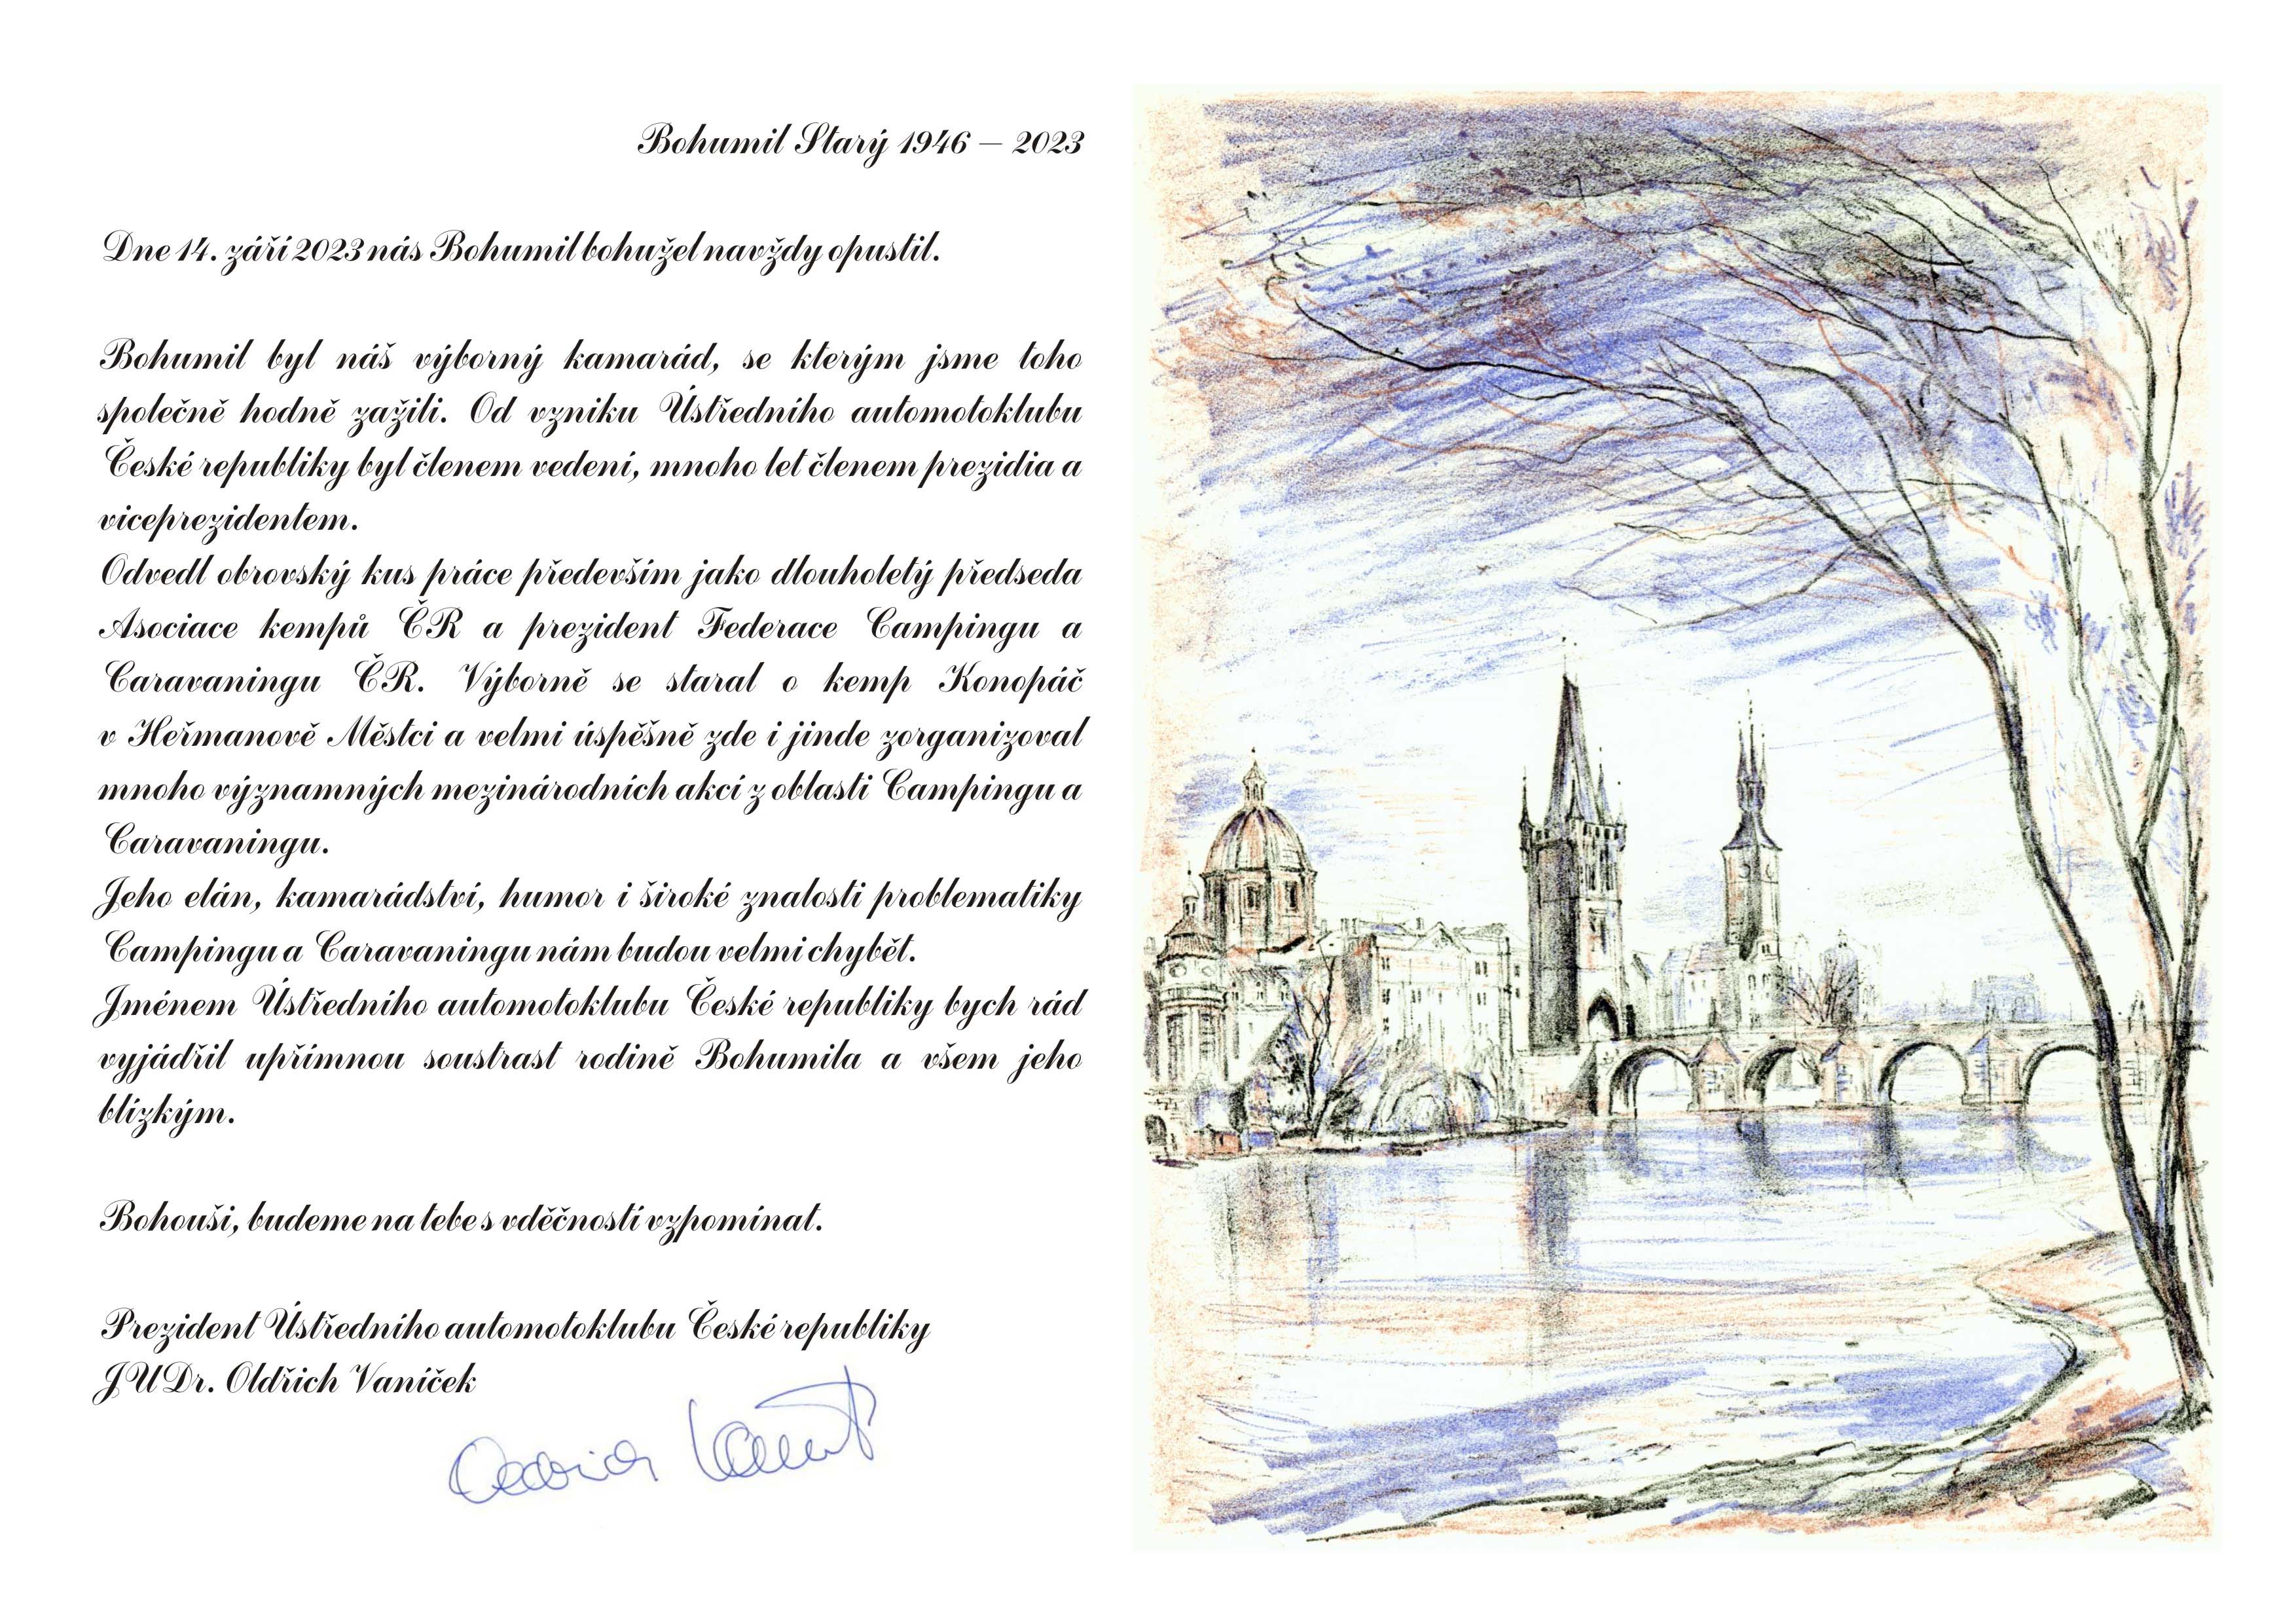 Bohumil Starý 1946 – 2023
Dne 14. září 2023 nás Bohumil bohužel navždy opustil.
Bohumil byl náš výborný kamarád, se kterým jsme toho
společně hodně zažili. Od vzniku Ústředního automotoklubu
České republiky byl členem vedení, mnoho let členem prezidia a
viceprezidentem.
Odvedl obrovský kus práce především jako dlouholetý předseda
Asociace kempů ČR a prezident Federace Campingu a
Caravaningu ČR. Výborně se staral o kemp Konopáč
v Heřmanově Městci a velmi úspěšně zde i jinde zorganizoval
mnoho významných mezinárodních akcí z oblasti Campingu a
Caravaningu.
Jeho elán, kamarádství, humor i široké znalosti problematiky
Campingu a Caravaningu nám budou velmi chybět.
Jménem Ústředního automotoklubu České republiky bych rád
vyjádřil upřímnou soustrast rodině Bohumila a všem jeho
blízkým.
Bohouši, budeme na tebe s vděčností vzpomínat.
Prezident Ústředního automotoklubu České republiky
JUDr. Oldřich Vaníček